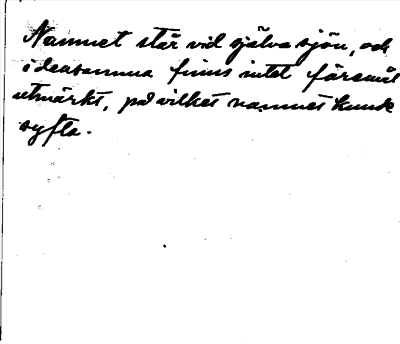 Namnet står vid själva sjön, och
i densamma finns intet föremål
utmärkt, på vilket namnet kunde
syfta.